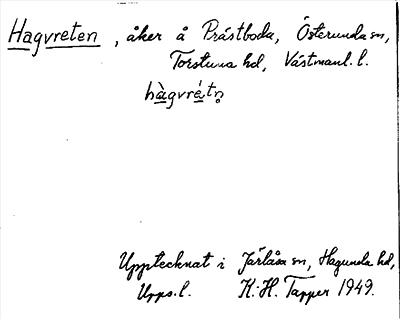 Hagvreten, åker å Prästboda, Österunda sn,
Torstuna hd, Västmanl. l.
hàgvrétn̥
Upptecknat i Järlåsa sn, Hagunda hd,
Upps. l. K.-H. Tapper 1949.